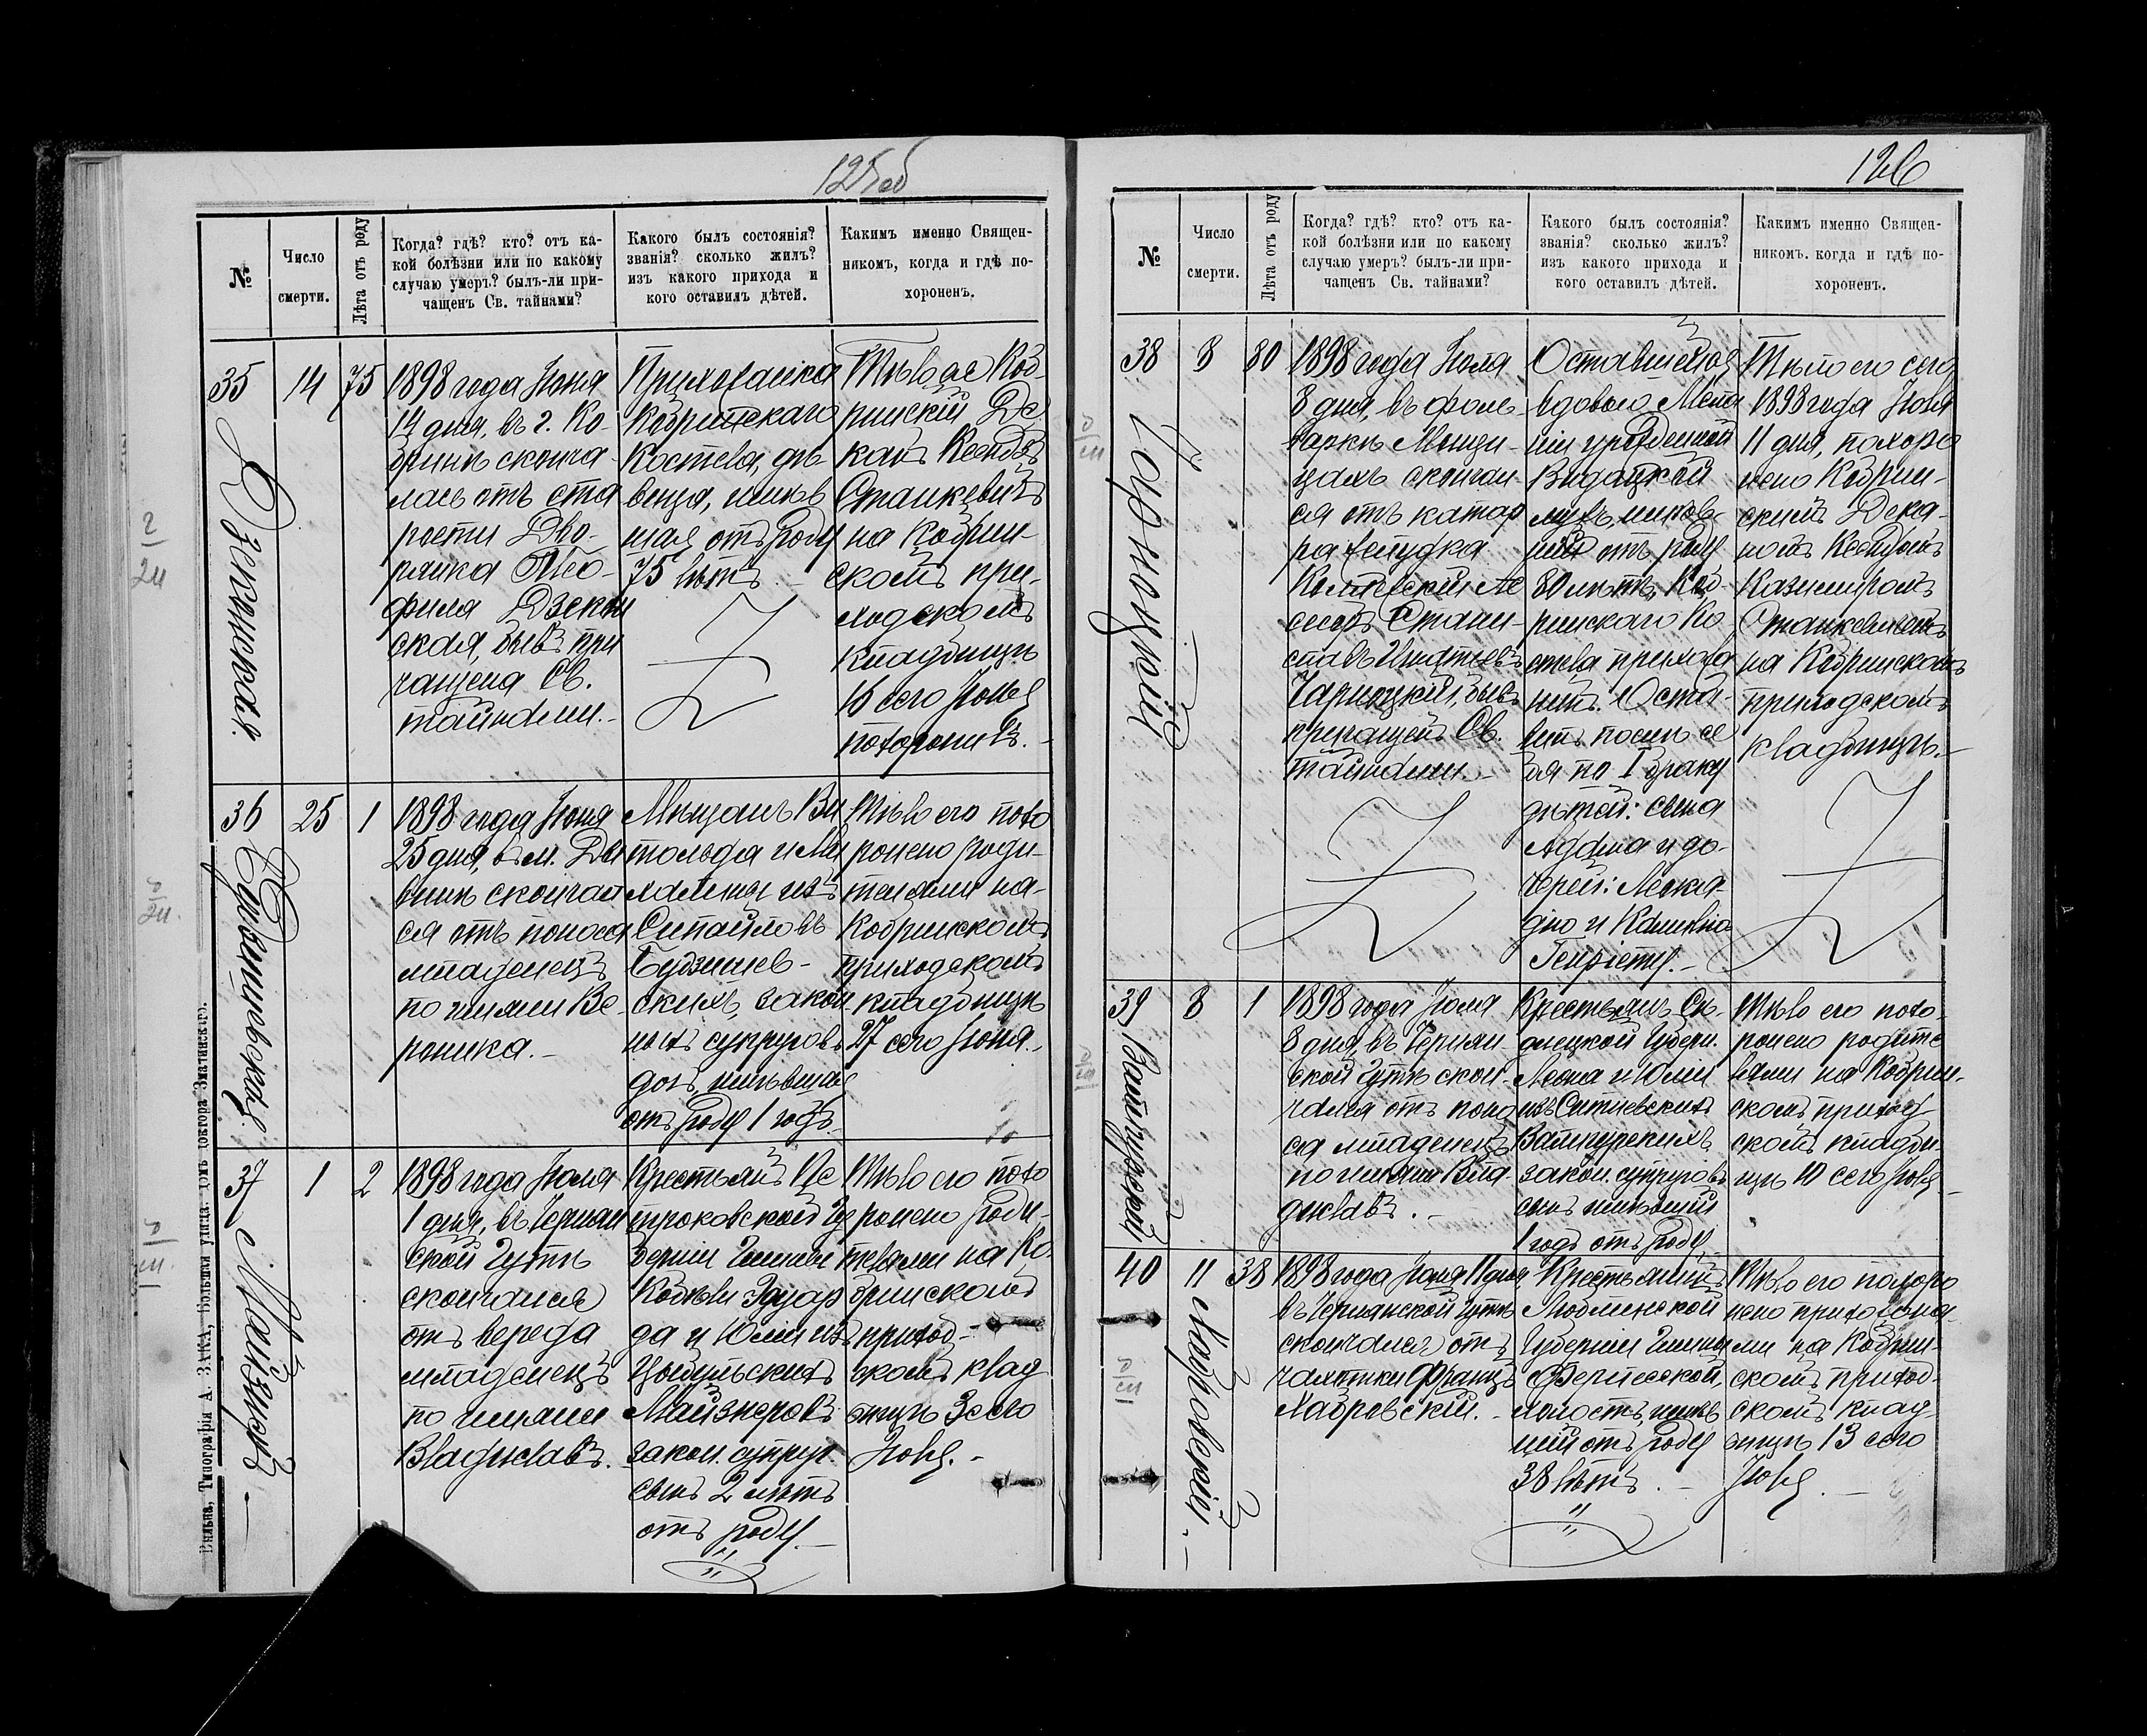 125об
№
Число
смерти.
Лѣта отъ роду
Когда? гдѣ? кто? отъ ка-
кой болѣзни или по какому
случаю умеръ? былъ-ли при-
чащенъ Св. тайнами?
Какого былъ состоянія?
званія? сколько жилъ?
изъ какого прихода и
кого оставилъ дѣтей.
Какимъ именно Священ-
никомъ, когда и гдѣ по-
хороненъ.
35
14
75
1898 года Іюня
14 дня, въ г. Ко-
бринѣ сконча
лась отъ ста
рости Дво-
рянка Тео-
филя
ская, бывъ при
чащена Св.
тайнами.-
Прихожанка
Кобринскаго
Костела, дѣ
вица, живъ
шая отъ роду
75 лѣтъ -
Тѣло ея Коб-
ринскій Де
канъ Ксендзъ
Станкевичъ
на Кобрин-
скомъ при-
ходскомъ
кладбищѣ
16 сего Іюня
похоронилъ.-
36
25
1
1898 года Іюня
25 дня, въ м. Ди
винѣ скончал
ся отъ поноса
младенецъ
по имяни Ве-
роника.-
Мѣщанъ Ви
тольда и Ми
халины изъ
Будзинов-
скихъ, закон
ныхъ супруговъ
дочь жившая
отъ роду 1 годъ
Тѣло его похо
ронено роди-
телями на-
Кобринскомъ
приходскомъ
кладбищѣ
27 сего Іюня.-
37
Майзнеръ -
1
2
1898 года Іюля
1 дня, въ Чернян
ской Гутѣ
скончался
отъ вереда
младенецъ
по имяни
Владиславъ.
Крестьянъ Пе
троковской Гу
берніи Гмины
Эдуар
да и Юліи изъ
Цыбульскихъ
Майзнеровъ
закон. супруг.
сынъ 2 лѣтъ
отъ роду.-
Тѣло его похо
ронено роди-
телями на Ко-
бринскомъ
приход-
скомъ клад
бищѣ 3 сего
Іюля.-
Вильна, Типографія А. ЗАКА, Большая улица. домъ доктора
126
№
Число
смерти.
Лѣта отъ роду
Когда? гдѣ? кто? отъ ка-
кой болѣзни или по какому
случаю умеръ? былъ-ли при-
чащенъ Св. тайнами?
Какого былъ состоянія?
званія? сколько жилъ?
изъ какого прихода и
кого оставилъ дѣтей.
Какимъ именно Священ-
никомъ. когда и гдѣ по-
хороненъ.
38
8
80
1898 года Іюля
8 дня, въ фоль-
варкѣ Мыщи-
цахъ скончал
ся отъ катар
ра желудка
Стани-
славъ Игнатьевъ
бывъ
причащенъ Св.
тайнами.-
вдовою
ніи урожденной
мужъ, живъ-
шій отъ роду
80 лѣтъ, Коб-
ринскаго Ко
стела прихожа
нинъ. Оста-
вилъ послѣ се
бя по I браку
дѣтей: сына
Адама и до-
черей: Леока-
дію и
Генріету.-
Тѣло его сего
1898 года Іюля
11 дня, похоро
нено Кобрин-
скимъ Дека-
номъ Ксендзомъ
Казимиромъ
Станкевичемъ
на Кобринскомъ
приходскомъ
кладбищѣ.-
39
8
1
1898 года Іюля
8 дня, въ Чернян
ской Гутѣ скон-
чался отъ поно
са младенецъ
по имяни Вла-
диславъ.-
Крестьянъ Су-
валецкой Губерн.
Леона и Юліи
закон. супруговъ
сынъ жившій
1 годъ отъ роду
Тѣло его похо-
ронено родите
лями на Кобрин-
скомъ приход
скомъ кладби-
щѣ 10 сего Іюля
40
Мавровскій.-
11
38
1898 года Іюля 11 дня
въ Чернянской Гутѣ
скончался отъ
чахотки Францъ
Крестьянинъ
Люблинской
Губерніи Гмины
холостъ, живъ
шій отъ роду
38 лѣтъ.-
Тѣло его похоро
нено прихожана-
ми на Кобрин-
скомъ приход-
скомъ клад-
бищѣ 13 сего
Іюля.-